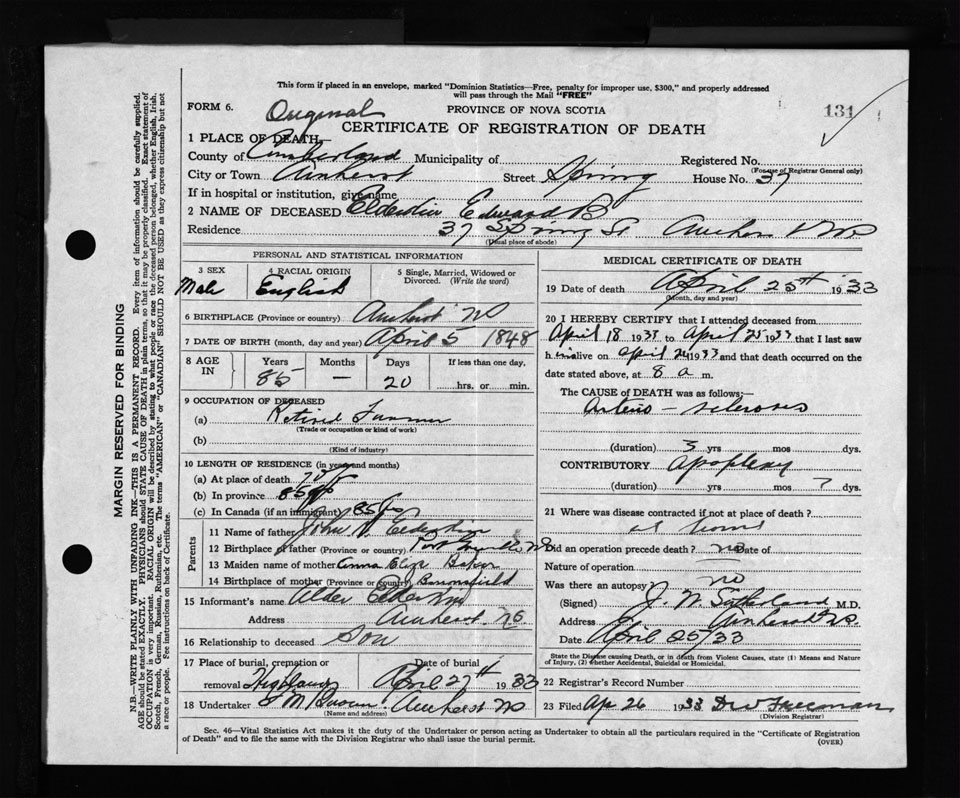 This form if placed in an envelope, marked "Dominion Statistics—Free, penalty for improper use, $300," and properly addressed
will pass through the Mail "FREE"
FORM 6.
Original
PROVINCE OF NOVA SCOTIA
131
CERTIFICATE OF REGISTRATION OF DEATH
1 PLACE OF DEATH
County of Cumberland Municipality of Registered No.
(For use of Registrar General only)
City or Town Amherst Street Spring House No. 37
If in hospital or institution, give name
2 NAME OF DECEASED Elderkin Edward B
Residence 37 Spring St Amherst N S
(Usual place of abode)
PERSONAL AND STATISTICAL INFORMATION
3 SEX
Male
4 RACIAL ORIGIN
English
5 Single, Married, Widowed or
Divorced. (Write the word)
6 BIRTHPLACE (Province or country) Amherst NS
7 DATE OF BIRTH (month, day and year) April 5 1848
8 AGE
IN
Years Months Days If less than one day,
85 — 20 hrs. or min.
9 OCCUPATION OF DECEASED
(a) Retired Farmer
(Trade or occupation or kind of work)
(b)
(Kind of industry)
10 LENGTH OF RESIDENCE (in years and months)
(a) At place of death
(b) In province 85 yrs
(c) In Canada (if an immigrant) 85 yrs
Parents
11 Name of father John Elderkin
12 Birthplace of father (Province or country) Port Greville NS
13 Maiden name of mother Anna Eliza Baker
14 Birthplace of mother (Province or country) Barronsfield
15 Informant's name Alder Elderkin
Address Amherst NS
16 Relationship to deceased Son
17 Place of burial, cremation or Date of burial
removal Highland April 27th 1933
18 Undertaker M Brown Amherst NS
(Name and address)
MEDICAL CERTIFICATE OF DEATH
19 Date of death April 25th 1933
(Month, day and year)
20 I HEREBY CERTIFY that I attended deceased from
April 18 1933 to April 25 1933 that I last saw
h im alive on April 24 1933 and that death occurred on the
date stated above, at 8 a m.
The CAUSE OF DEATH was as follows:—
Arterio - sclerosis
(duration) 3 yrs mos dys.
CONTRIBUTORY apoplexy
(duration) yrs mos 7 dys.
21 Where was disease contracted if not at place of death?
at home
Did an operation precede death? no Date of
Nature of operation
Was there an autopsy? no
(Signed) J. N. Sutherland M.D.
Address Amherst NS.
Date April 25/33
State the Disease causing Death, or in death from Violent Causes, state (1) Means and Nature
of Injury, (2) whether Accidental, Suicidal or Homicidal.
22 Registrar's Record Number
23 Filed Ap 26 1933 D W Freeman
(Division Registrar)
Sec. 46—Vital Statistics Act makes it the duty of the Undertaker or person acting as Undertaker to obtain all the particulars required in the "Certificate of Registration
of Death" and to file the same with the Division Registrar who shall issue the burial permit.
(OVER)
MARGIN RESERVED FOR BINDING
N.B.—WRITE PLAINLY WITH UNFADING INK—THIS IS A PERMANENT RECORD. Every item of information should be carefully supplied.
AGE should be stated EXACTLY. PHYSICIANS should STATE CAUSE OF DEATH in plain terms, so that it may be properly classified. Exact statement of
OCCUPATION is very important. RACIAL ORIGIN will be described by stating to what people or race the deceased person belonged, whether English, Irish,
Scotch, French, German, Russian, Ruthenian, etc. The terms "AMERICAN" or "CANADIAN" SHOULD NOT BE USED as they express citizenship but not
a race or people. See instructions on back of Certificate.